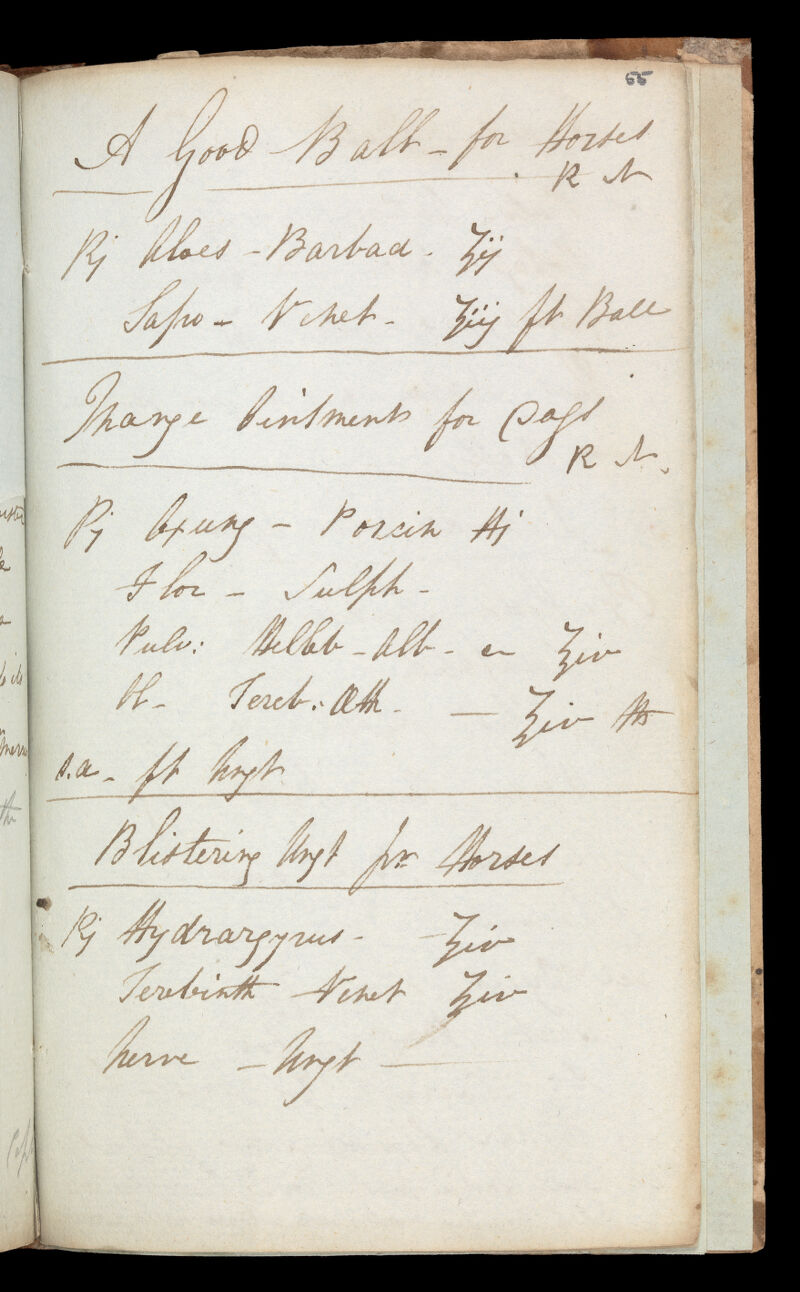 65
A Good Ball - for Horses
R N
Rj Aloes - Barbad. ʒij
Sapo - Venet - ʒiij ft Ball
Mange Ointment for Dogs
R N.
Rj Axung - Porcin ℔j
Flor - Sulph -
Pulv: Helleb - Alb - a ʒiv
Ol - Tereb: Æth. — ʒiv
s.a - ft Ungt
Blistering Ungt for Horses
Rj Hydrargyrus - - ʒiv
Terebinth Venet ʒiv
Nerve - Ungt —